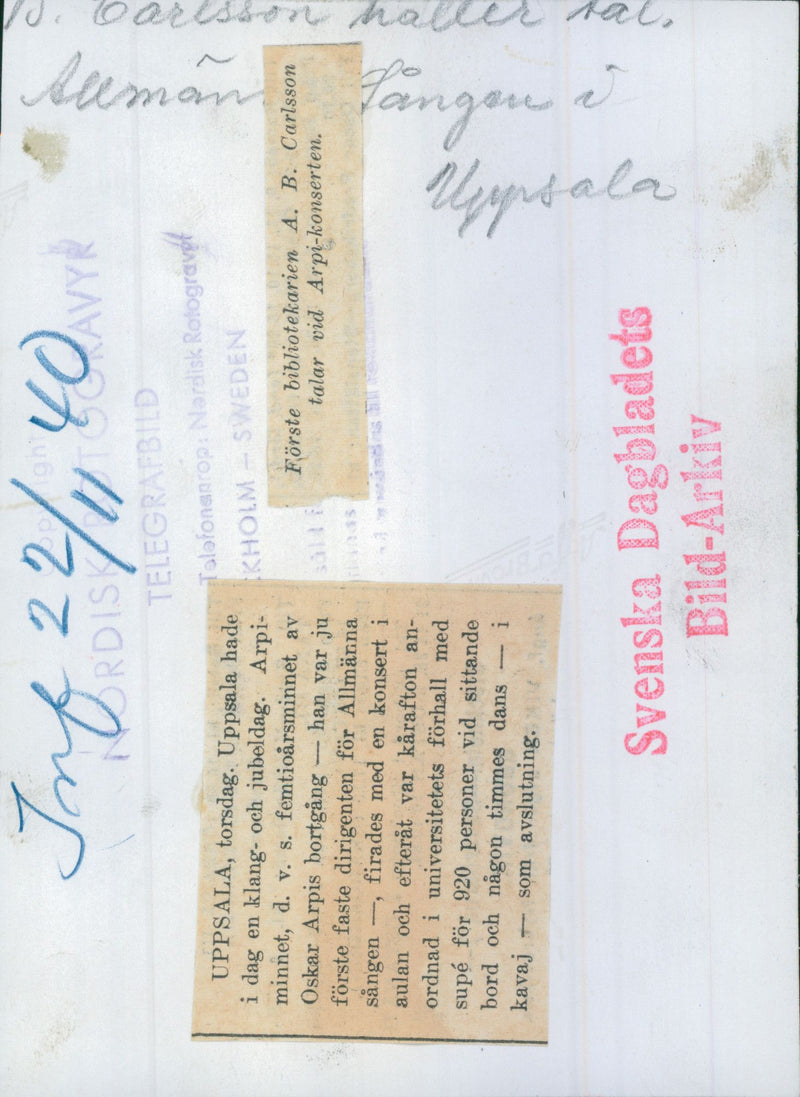 B. Carlsson håller tal.
Allmän Sången i
Uppsala
Förste bibliotekarien A. B. Carlsson
talar vid Arpi-konserten.
Inf 22/11 40
Copyright
NORDISK ROTOGRAVYR
TELEGRAFBILD
Telefonanrop: Nordisk Rotogravyr
KHOLM — SWEDEN
UPPSALA, torsdag. Uppsala hade
i dag en klang- och jubeldag. Arpi-
minnet, d. v. s. femtioårsminnet av
Oskar Arpis bortgång — han var ju
förste faste dirigenten för Allmänna
sången —, firades med en konsert i
aulan och efteråt var kårafton an-
ordnad i universitetets förhall med
supé för 920 personer vid sittande
bord och någon timmes dans — i
kavaj — som avslutning.
Svenska Dagbladets
Bild-Arkiv